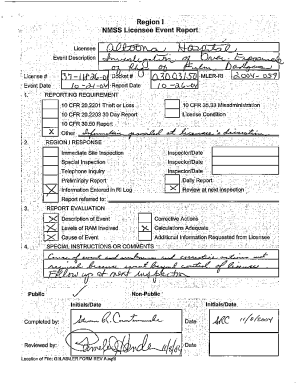 Region I
NMSS Licensee Event Report
Licensee Altoona Hospital
Event Description Investigation of Over Exposure
of Film Badges
License # 37-11826-01 Docket # 03003150 MLER-RI 2004-039
Event Date 10-21-04 Report Date 10-26-04
1. REPORTING REQUIREMENT
10 CFR 20.2201 Theft or Loss 10 CFR 35.33 Misadministration
10 CFR 20.2203 30 Day Report License Condition
10 CFR 30.50 Report
X Other Information provided at licensee's discretion
2. REGION I RESPONSE
Immediate Site Inspection Inspector/Date
Special Inspection Inspector/Date
Telephone Inquiry Inspector/Date
Preliminary Report Daily Report
X Information Entered in RI Log X Review at next inspection
Report referred to:
3. REPORT EVALUATION
X Description of Event Corrective Actions
X Levels of RAM Involved X Calculations Adequate
X Cause of Event Additional Information Requested from Licensee
4. SPECIAL INSTRUCTIONS OR COMMENTS
Cause of event and corrective actions not
required because event beyond control of licensee
Follow up at next inspection
Public Non-Public
Initials/Date Initials/Date
Completed by: Date 11/5/2004
Reviewed by: Pamela Henderson 11/5/04 Date
Location of File: G:\LASB\LER FORM REV